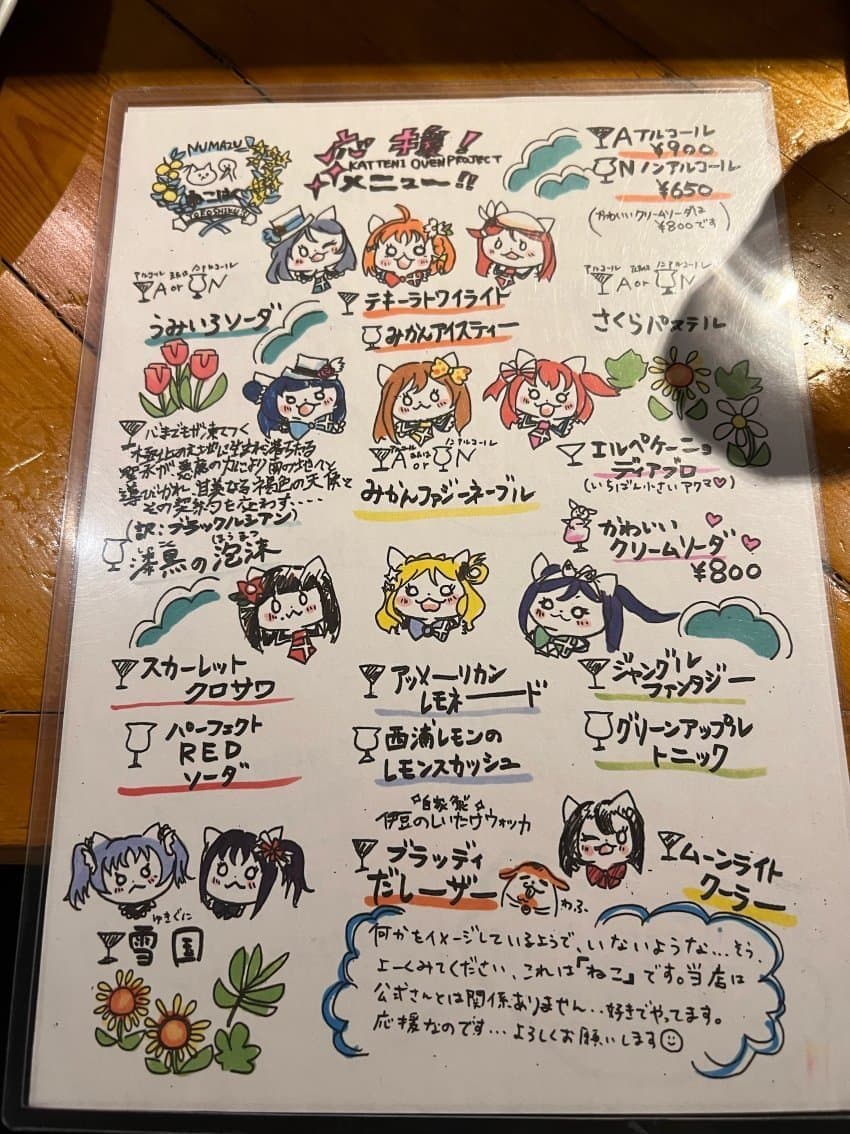 NUMAZU
ねこはく
YOROSHIKU!!
応援!
KATTENI OUEN PROJECT
メニュー!!
Aアルコール
¥900
Nノンアルコール
¥650
(かわいいクリームソーダは
¥800です)
アルコール または ノンアルコール
A or N
うみいろソーダ
テキーラトワイライト
みかんアイスティー
アルコール または ノンアルコール
A or N
さくらパステル
心までもが凍てつく
堕天使が悪魔の力により南の地へと
導びかれ、甘美なる褐色の天使と
その姿形を変わす....
(訳:ブラックルシアン)
ほうまつ
漆黒の泡沫
アルコール または ノンアルコール
A or N
みかんファジーネーブル
エルペケーニョ
ディアブロ
(いちばん小さいアクマ♡)
かわいい
クリームソーダ
¥800
スカーレット
クロサワ
パーフェクト
RED
ソーダ
アッメーリカン
レモネード
西浦レモンの
レモンスカッシュ
ジャングル
ファンタジー
グリーンアップル
トニック
ゆきぐに
雪国
自家製
伊豆のしいたけウォッカ
ブラッディ
だレーザー
わふ
ムーンライト
クーラー
何かをイメージしているようで、いないような...そう、
よーくみてください、これは「ねこ」です。当店は
公式さんとは関係ありません..好きでやってます。
応援なのです...よろしくお願いします☺